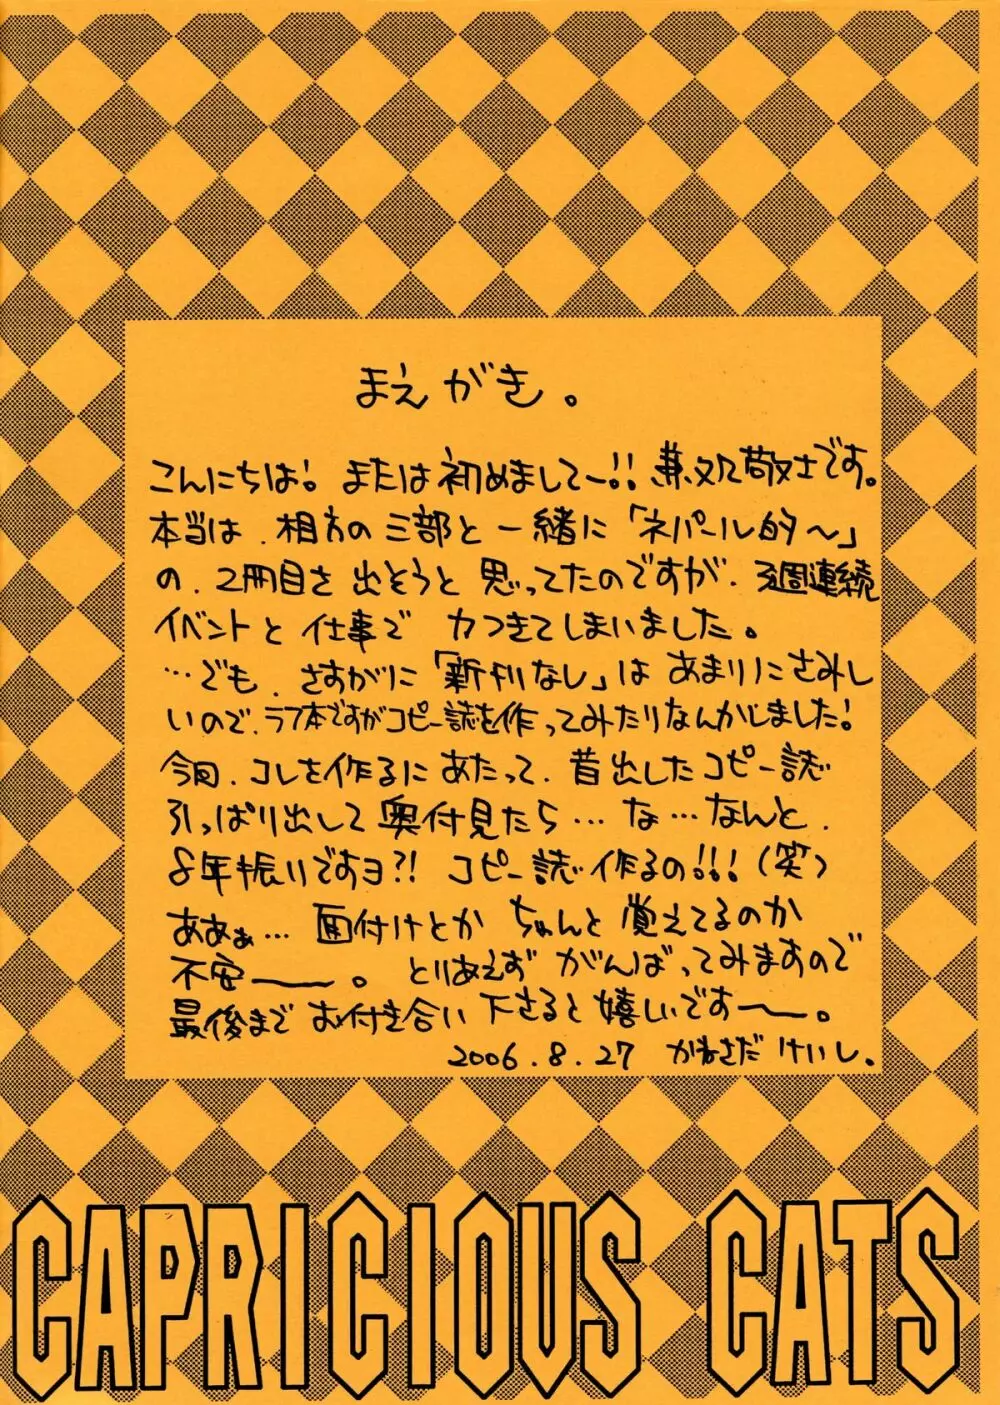 まえがき。
こんにちは! または初めまして~!! 兼处敬士です。
本当は、相方の三部と一緒に「ネパール的~」
の、2冊目を出そうと思ってたのですが、3週連続
イベントと仕事で力つきてしまいました。
…でも、さすがに「新刊なし」はあまりにさみし
いので、ラフ本ですがコピー誌を作ってみたりなんかしました!
今回、コレを作るにあたって、昔出したコピー誌
引っぱり出して奥付見たら…な…なんと、
8年振りですヨ?! コピー誌作るの!!!(笑)
ああぁ…面付けとかちゃんと覚えてるのか
不安――。とりあえずがんばってみますので
最後までお付き合い下さると嬉しいです~。
2006.8.27 かねさだ けいし。
CAPRICIOUS CATS